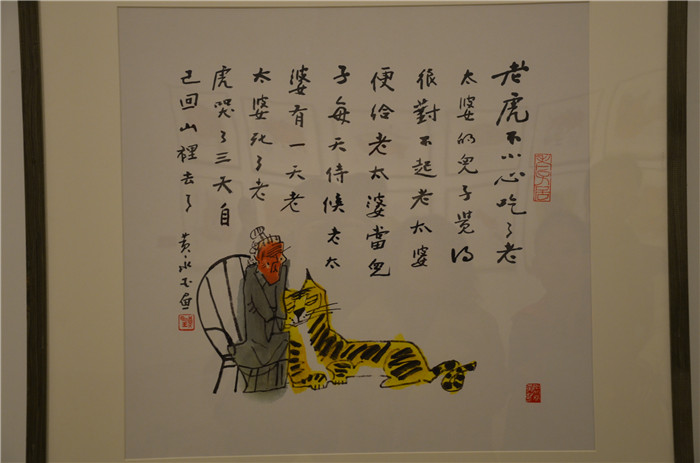 老虎不小心吃了老
太婆的兒子覺得
很對不起老太婆
便給老太婆當兒
子每天侍候老太
婆有一天老
太婆死了老
虎哭了三天自
己回山裡去了
黃永玉畫